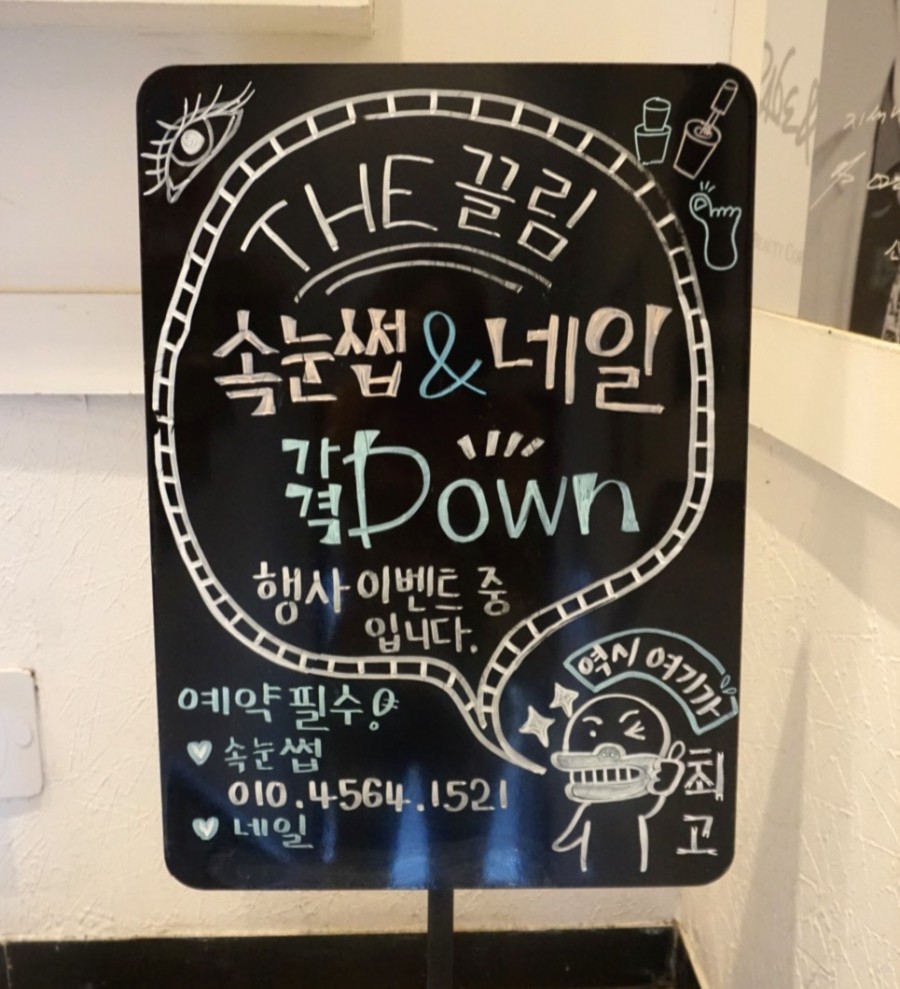 THE 끌림
속눈썹 & 네일
가격 Down
행사 이벤트 중
입니다.
예약 필수!
♥ 속눈썹
010.4564.1521
♥ 네일
역시 여기가
최고